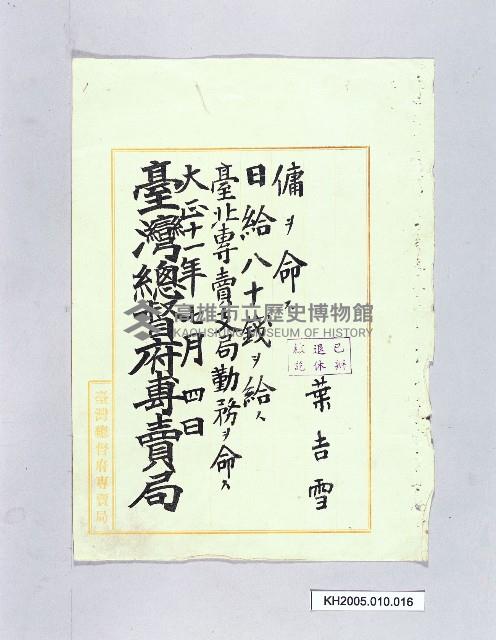 葉吉雪
傭ヲ命ス
日給八十錢ヲ給ス
臺北專賣支局勤務ヲ命ス
大正十一年九月四日
臺灣總督府專賣局
已辦
退休
臺灣總督府專賣局
高雄市立歷史博物館
KAOHSIUNG MUSEUM OF HISTORY
KH2005.010.016